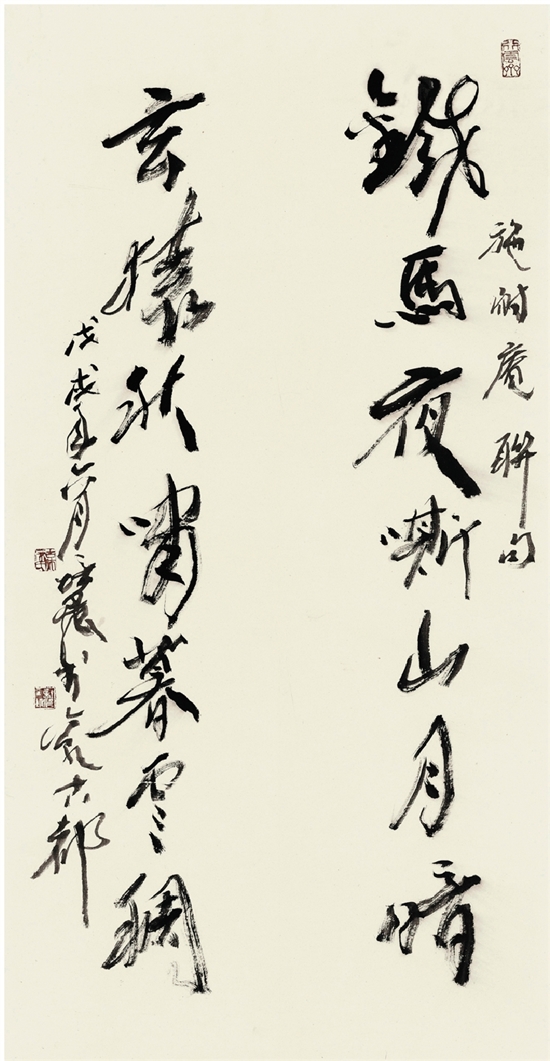 鐵馬夜嘶山月暗
施耐庵聯句
玄猿秋嘯暮雲稠
戊戌年六月 書 古都